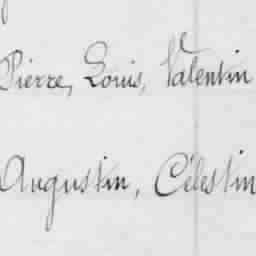 Pierre, Louis, Valentin
Augustin, Célestin